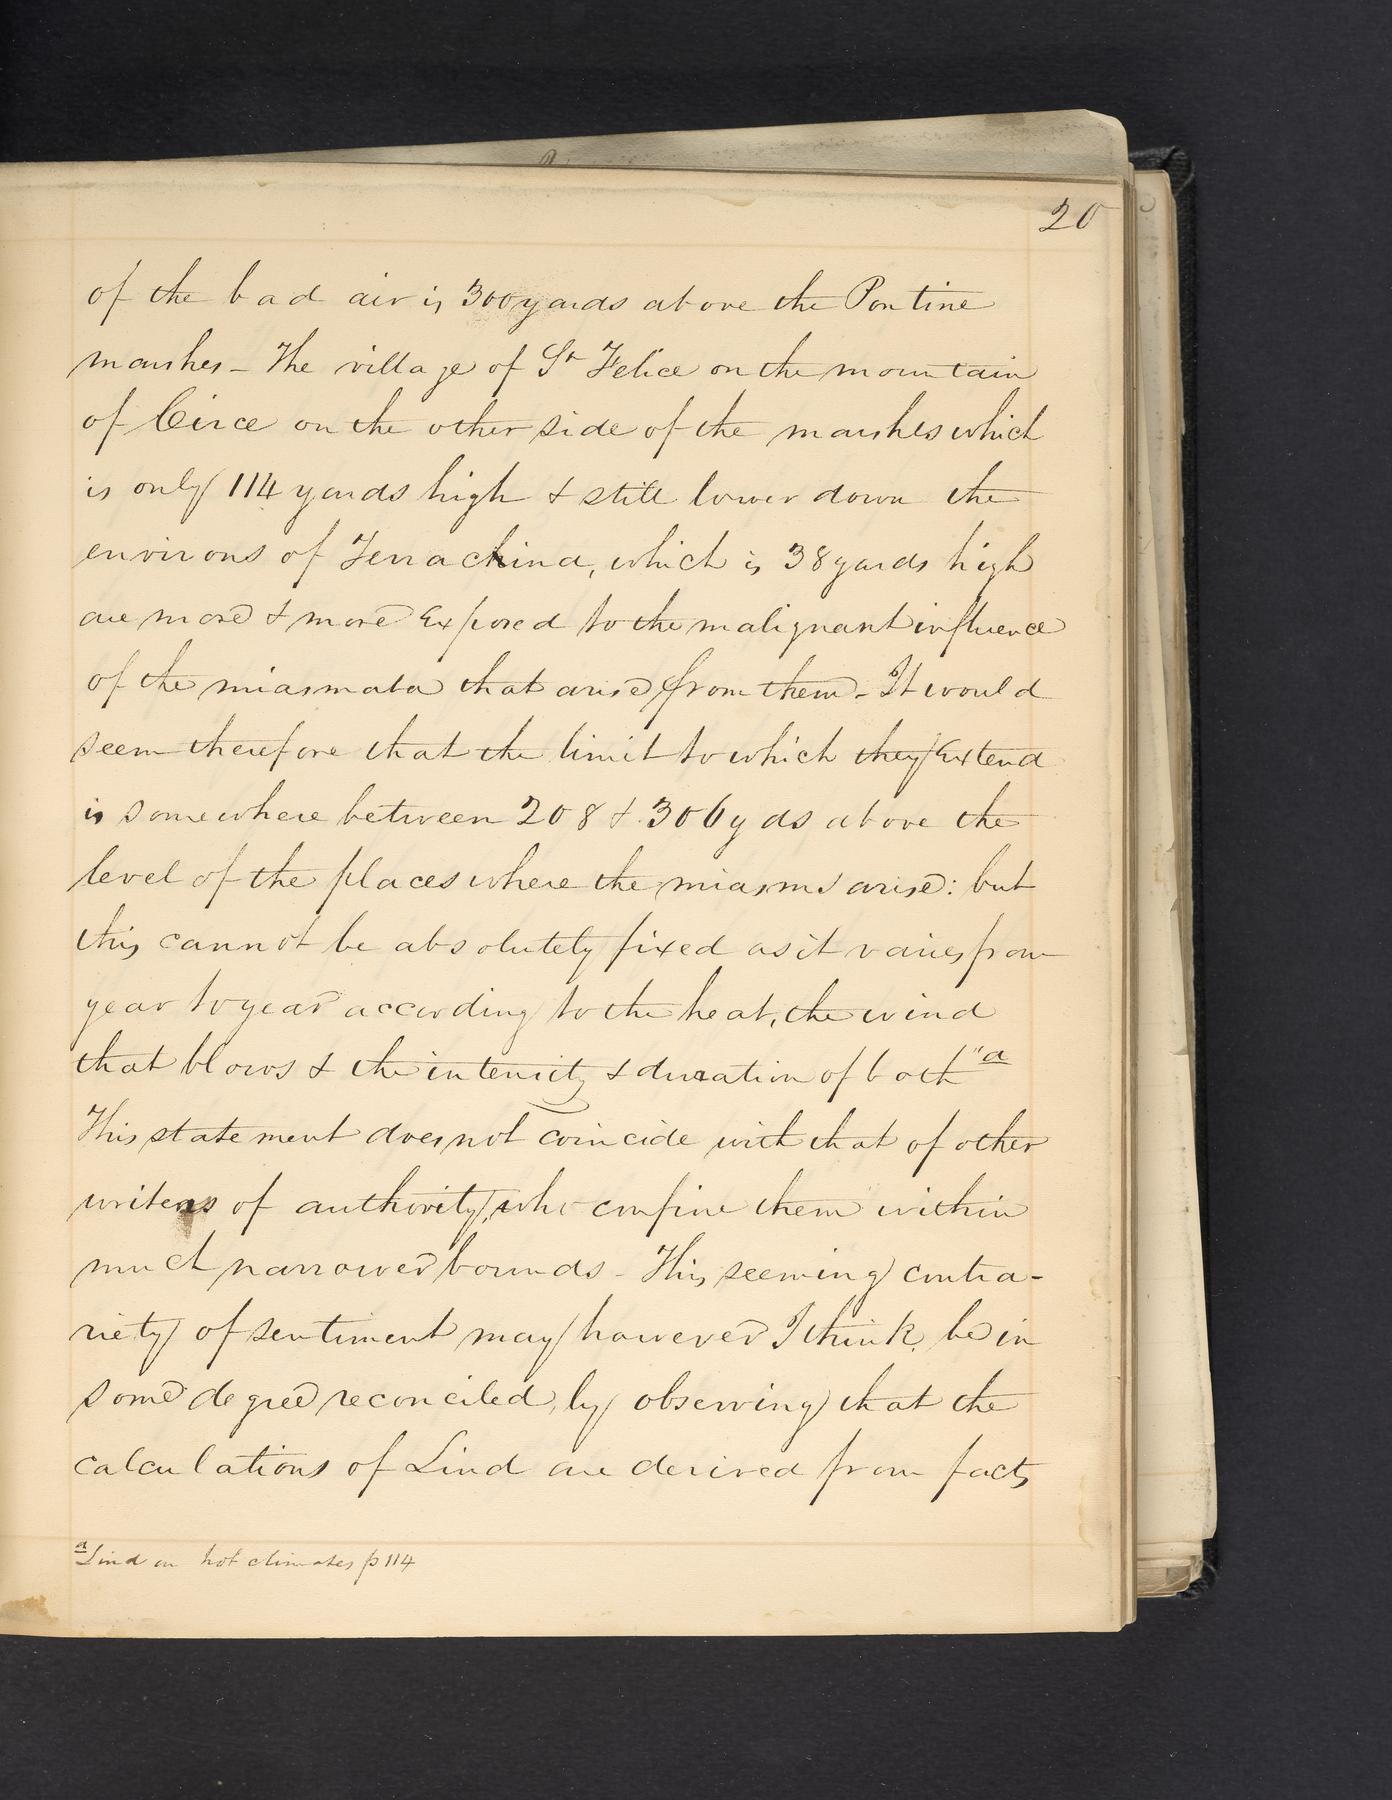 20
of the bad air is 300 yards above the Pontine
marshes - The village of St Felice on the mountain
of Circe on the other side of the marshes which
is only 114 yards high & still lower down the
environs of Terrachina, which is 38 yards high
are more & more exposed to the malignant influence
of the miasmata that arise from them - It would
seem therefore that the limit to which they extend
is somewhere between 208 & 306 yds above the
level of the places where the miasms arise: but
this cannot be absolutely fixed as it varies from
year to year according to the heat, the wind
that blows & the intensity & duration of both" a
This statement does not coincide with that of other
writers of authority, who confine them within
much narrower bounds - This seeming contra-
riety of sentiment may however I think be in
some degree reconciled by observing that the
calculations of Lind are derived from facts
a Lind on hot climates p 114